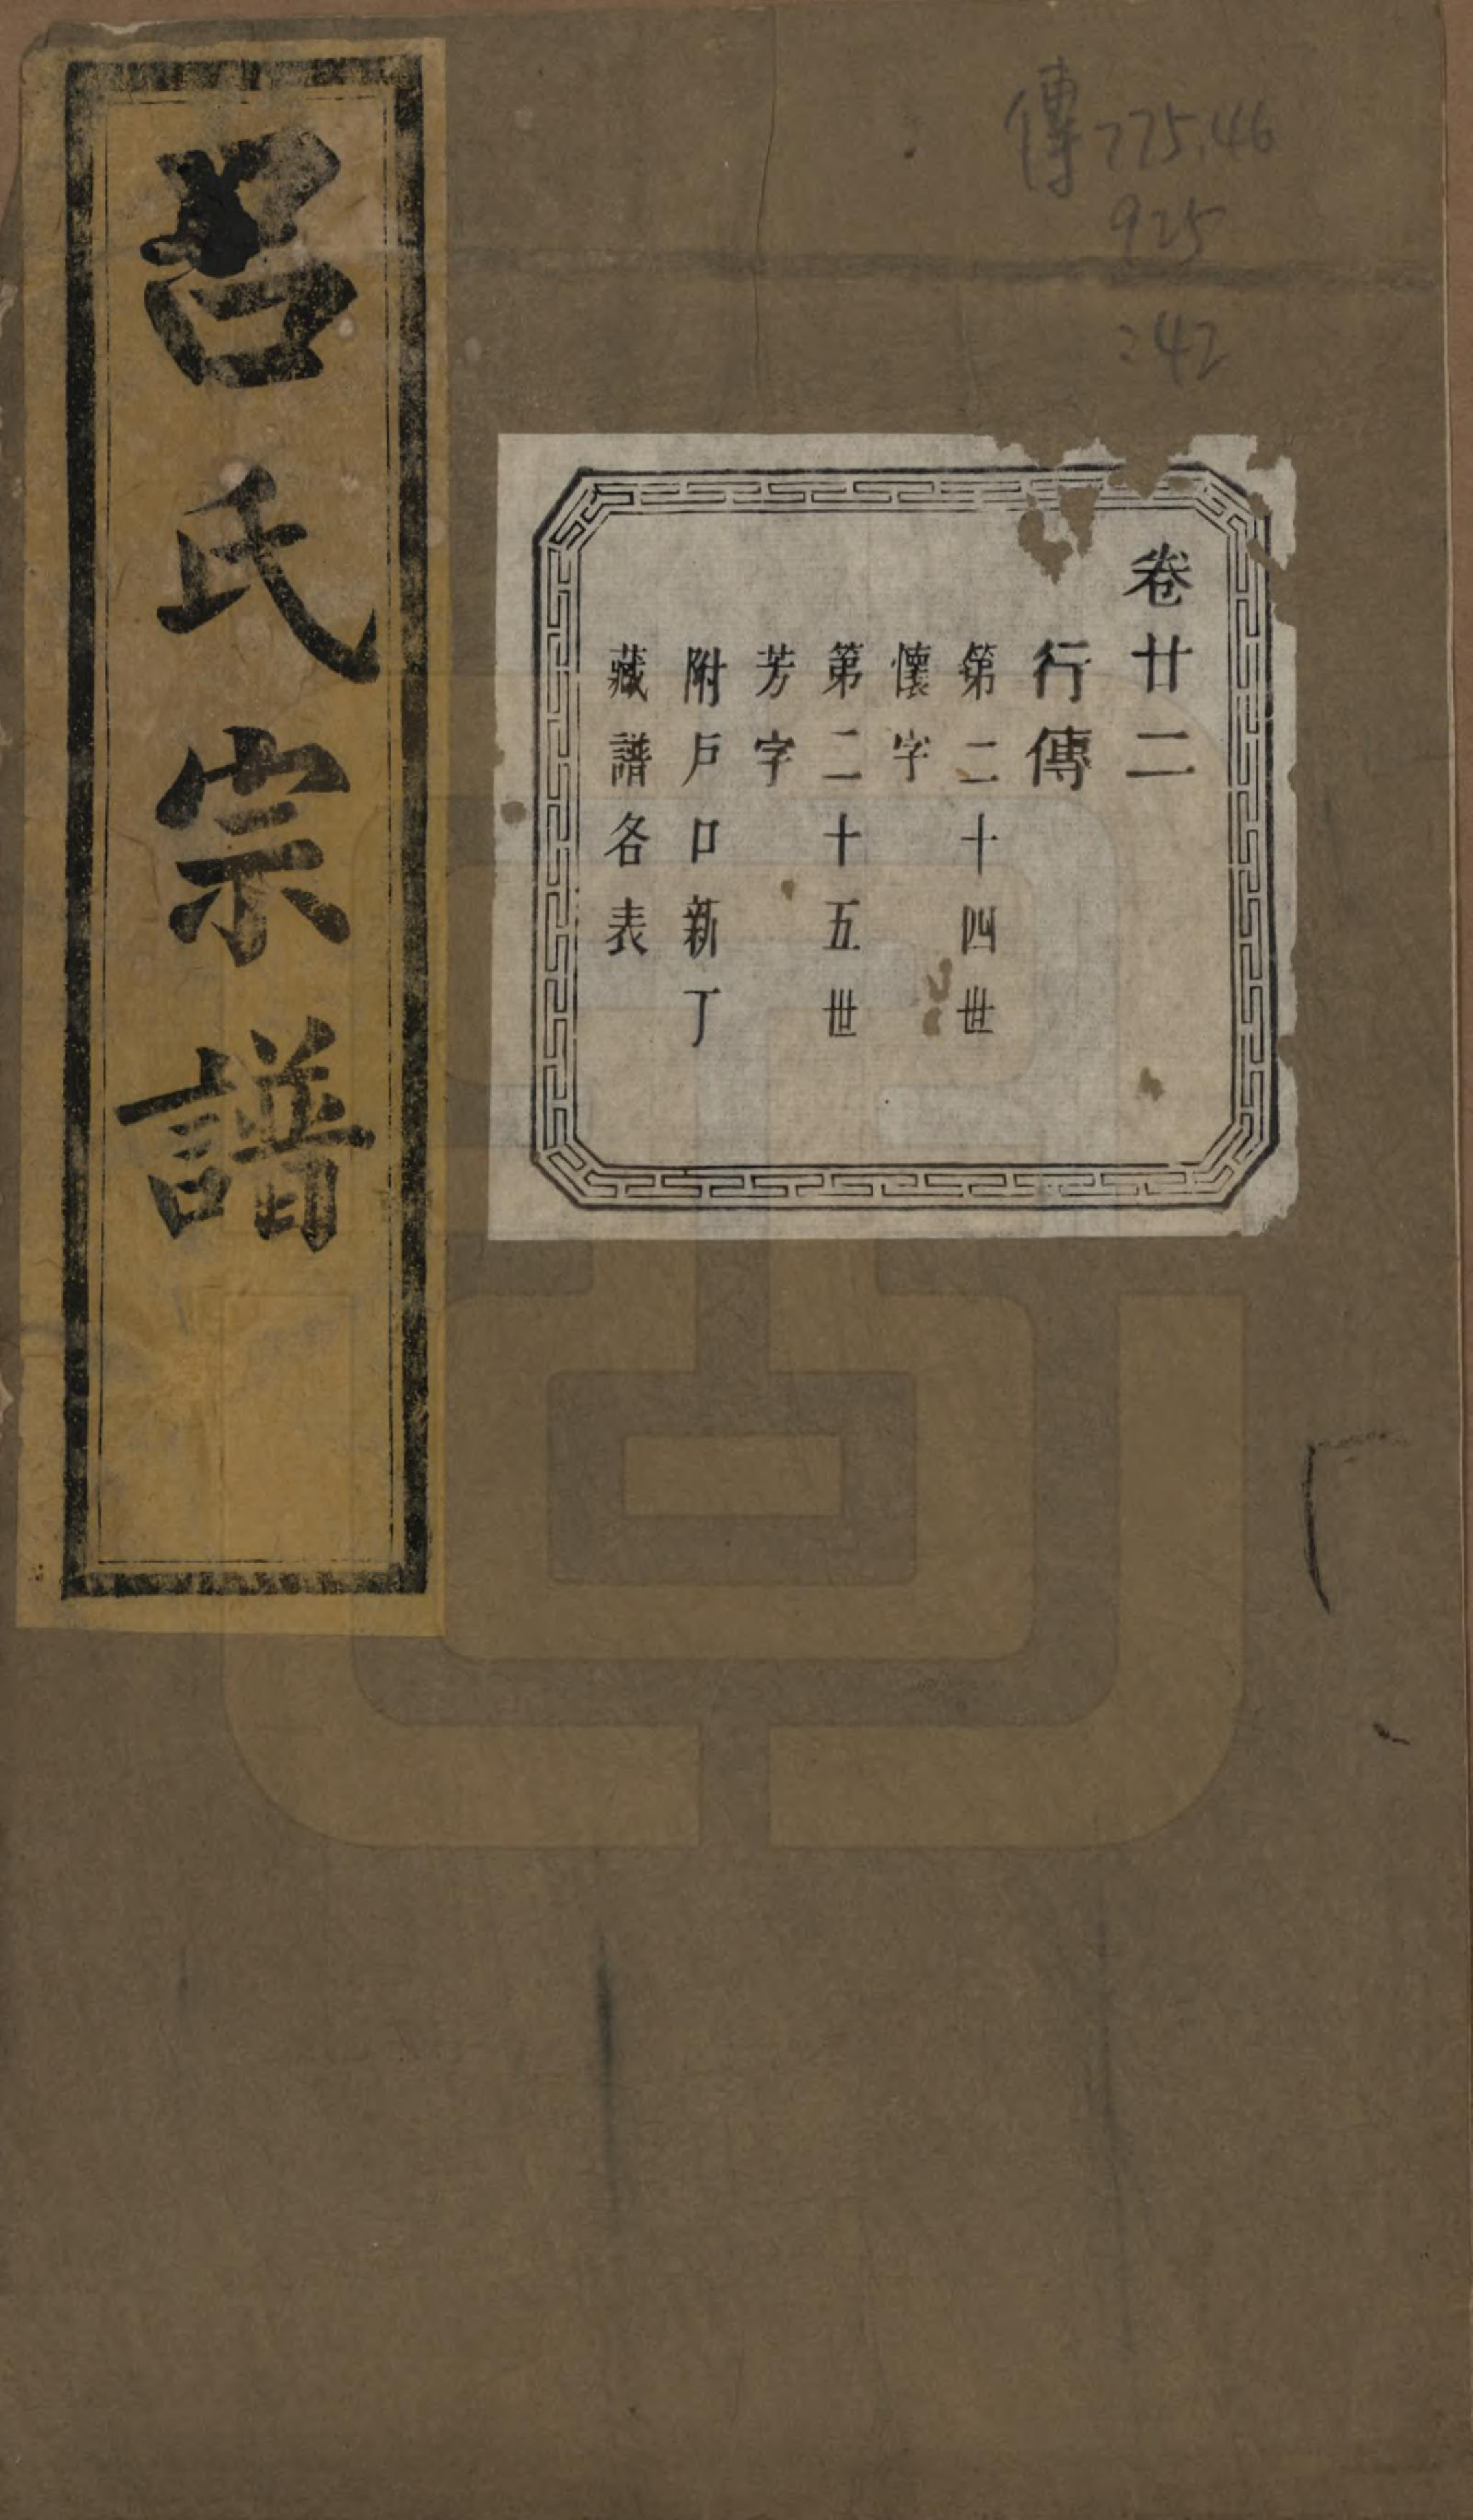 呂氏宗譜
傳775.46
925
:42
卷廿二
行傳
第二十四世
懷字
第二十五世
芳字
附戶口新丁
藏譜各表